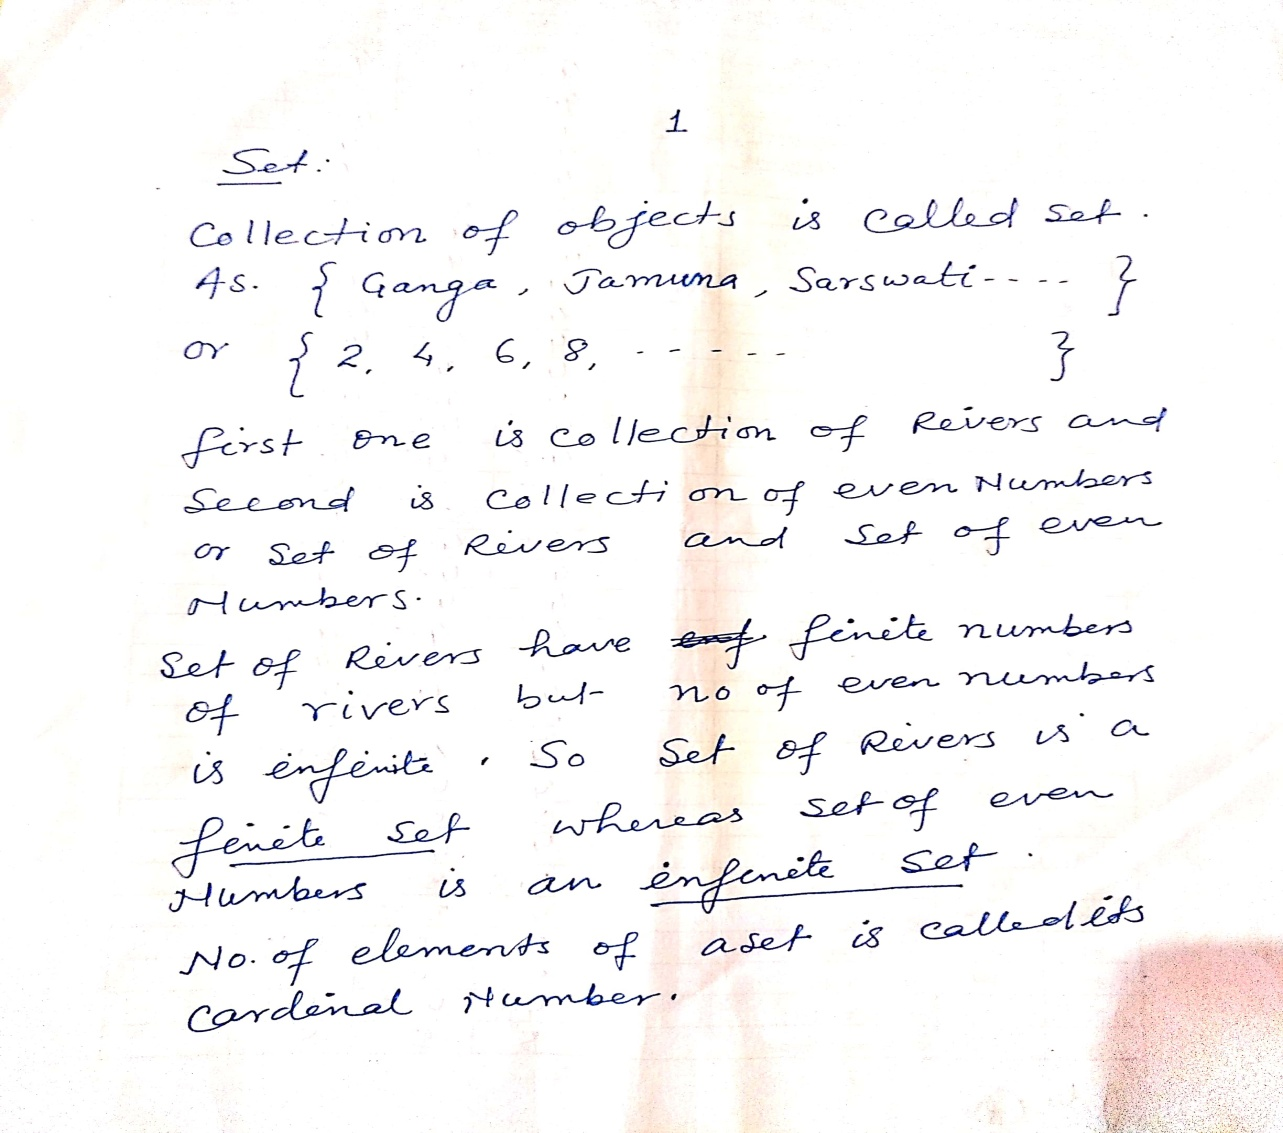 1
Set:
Collection of objects is called set.
As. { Ganga, Jamuna, Sarswati---- }
or { 2, 4, 6, 8, ------ }
first one is collection of Rivers and
Second is collection of even Numbers
or Set of Rivers and Set of even
Numbers.
Set of Rivers have finite numbers
of rivers but no of even numbers
is infinite. So Set of Rivers is a
finite set whereas set of even
Numbers is an infinite set.
No. of elements of a set is called its
Cardinal Number.